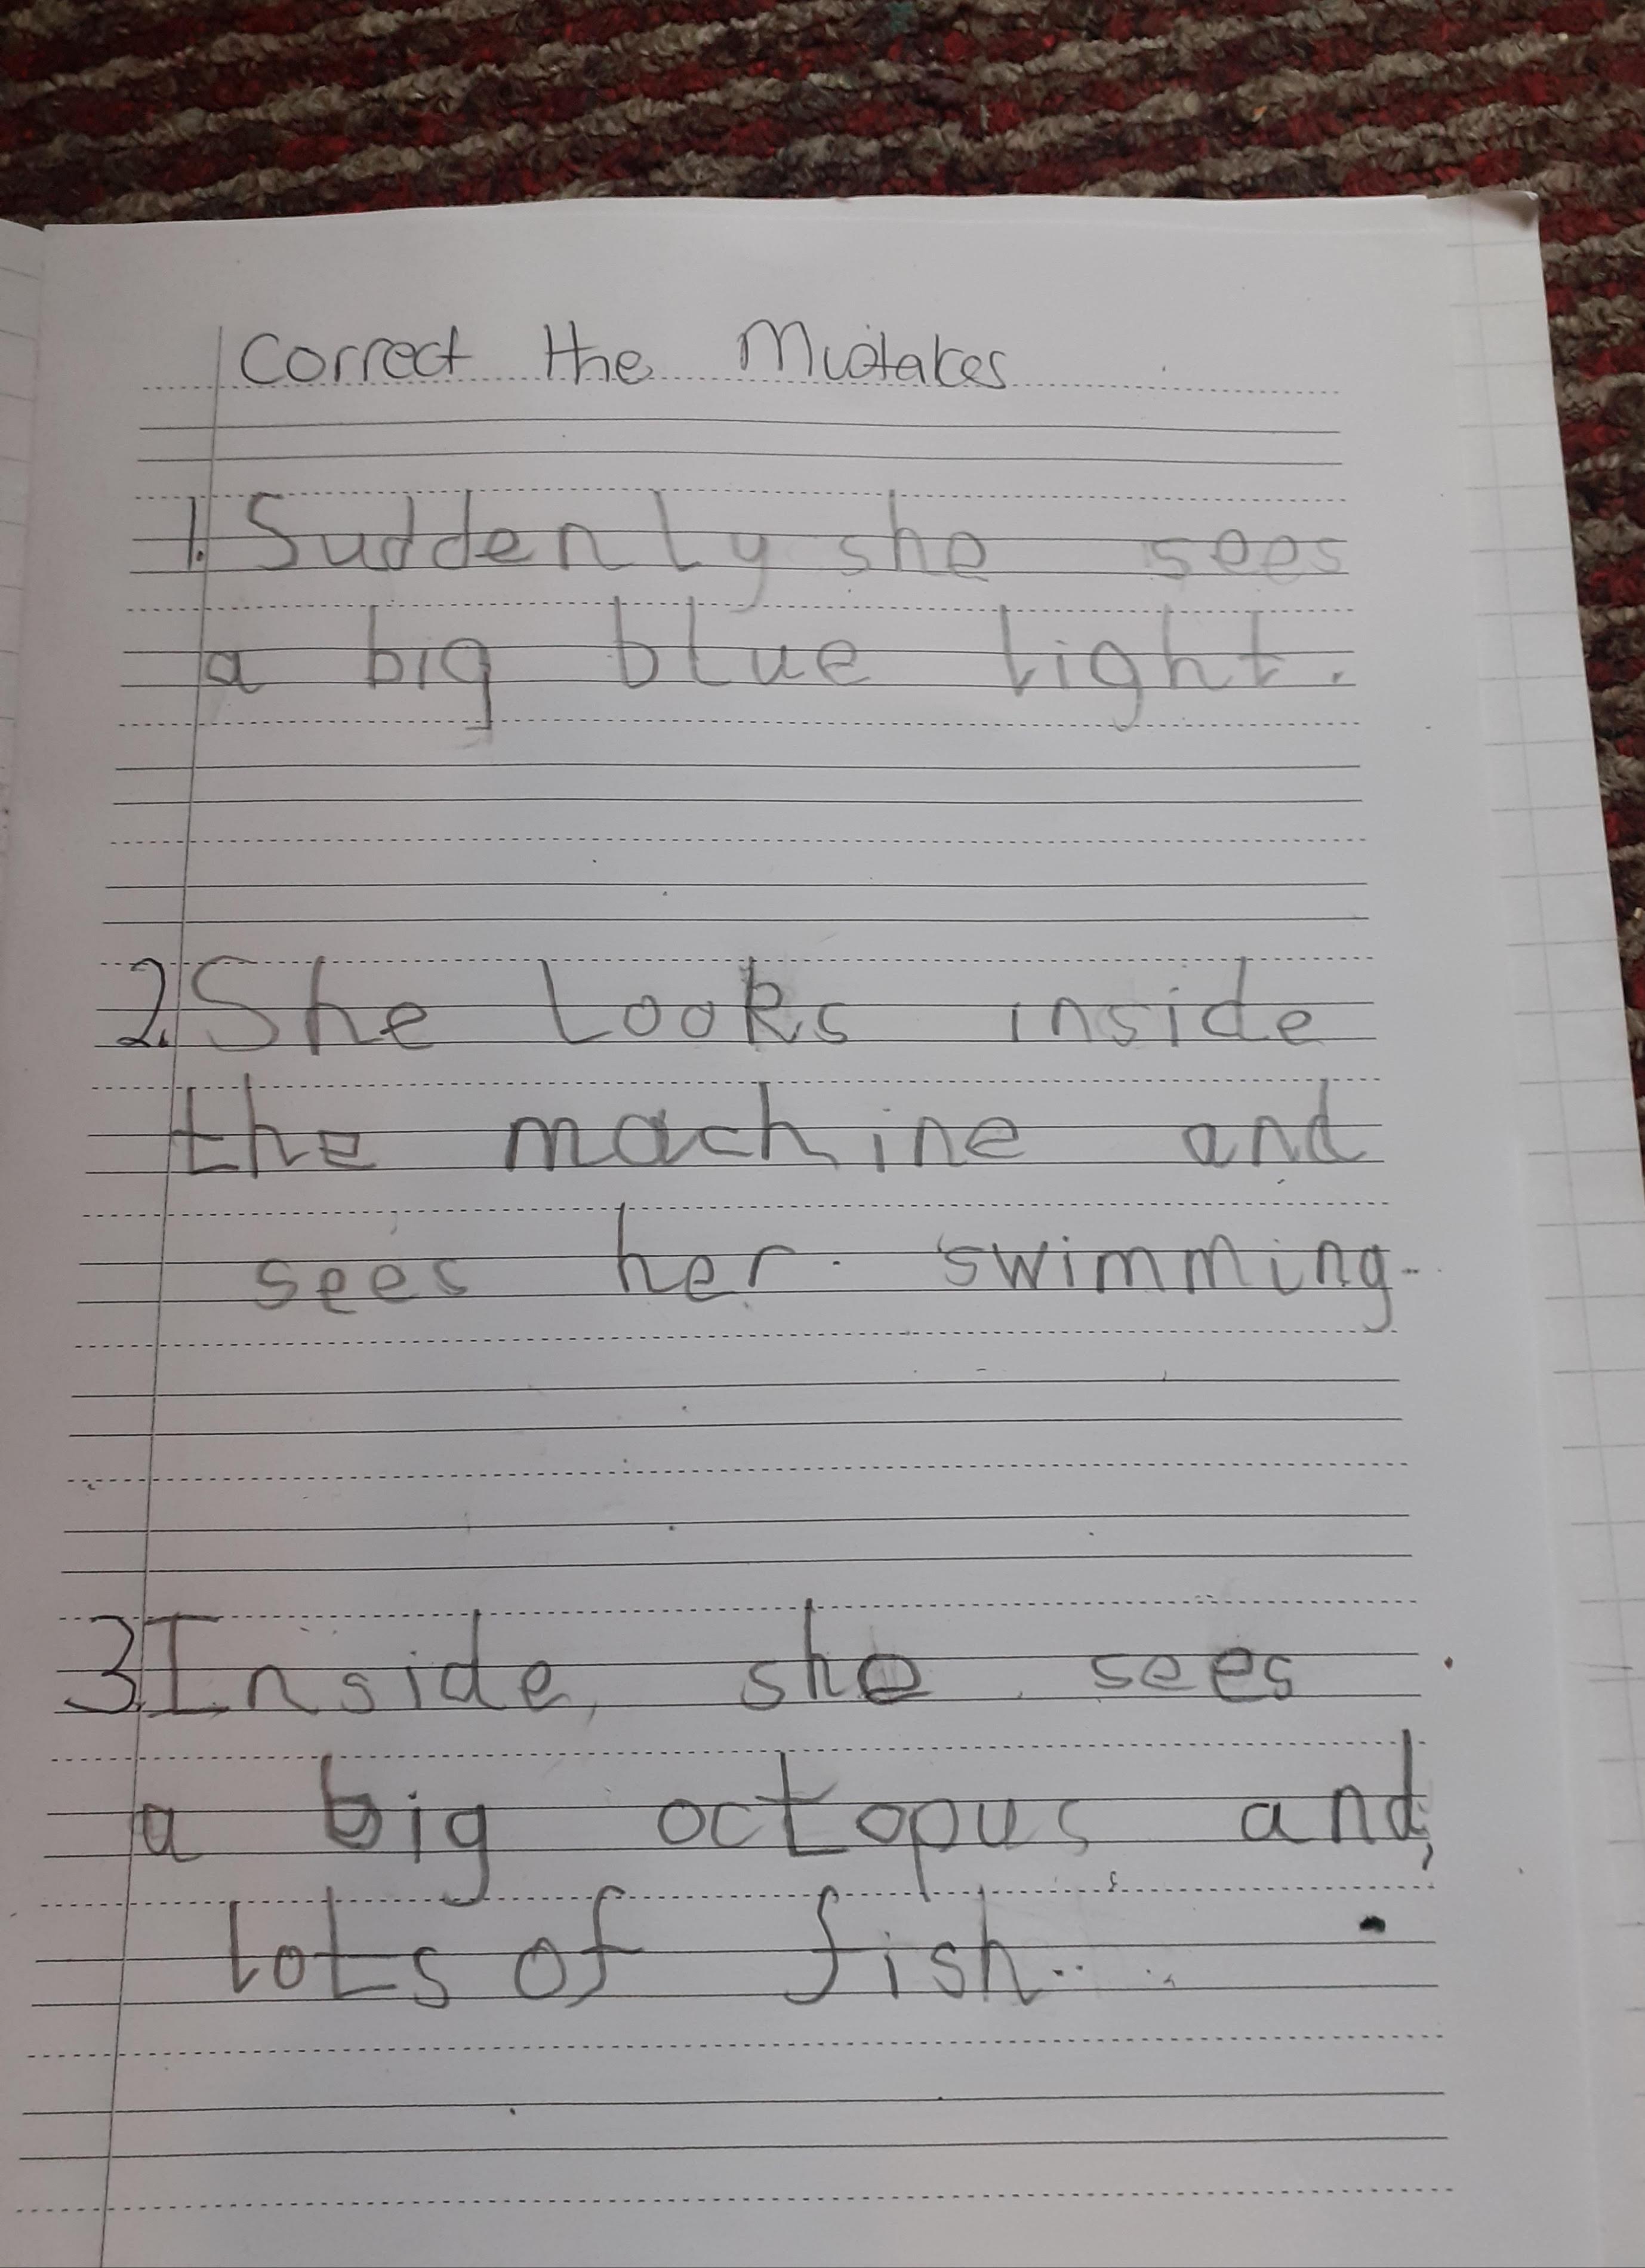 Correct the Mistakes
1. Suddenly she sees
a big blue light.
2. She looks inside
the machine and
sees her swimming.
3. Inside, she sees
a big octopus and,
lots of fish.